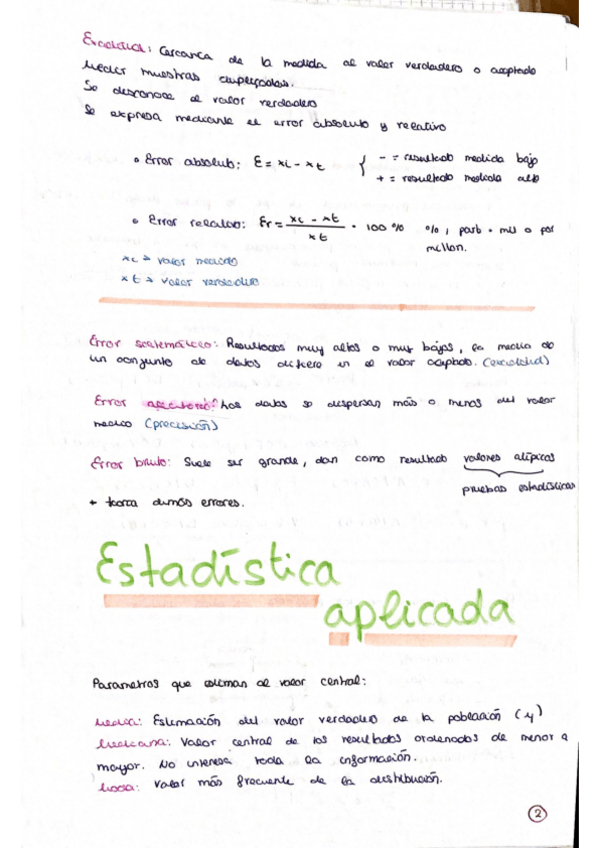 Exactitud: Cercanía de la medida al valor verdadero o aceptado
Medir muestras duplicadas.
Se desconoce el valor verdadero
Se expresa mediante el error absoluto y relativo
• Error absoluto: E = xi - xt { - = resultado medida bajo
+ = resultado medida alto
• Error relativo: Er = (xi - xt) / xt · 100 % %, part · mil o por
millon.
xi → valor medido
xt → valor verdadero
Error sistemático: Resultados muy altos o muy bajos, la media de
un conjunto de datos difiere en el valor aceptado. (exactitud)
Error aleatorio: Los datos se dispersan más o menos del valor
medio (precisión)
Error bruto: Suele ser grande, dan como resultado valores atípicos
pruebas estadísticas
+ teoría demás errores.
Estadística
aplicada
Parametros que estiman al valor central:
Media: Estimación del valor verdadero de la población (y)
Mediana: Valor central de los resultados ordenados de menor a
mayor. No interesa toda la información.
Moda: Valor más frecuente de la distribución.
2